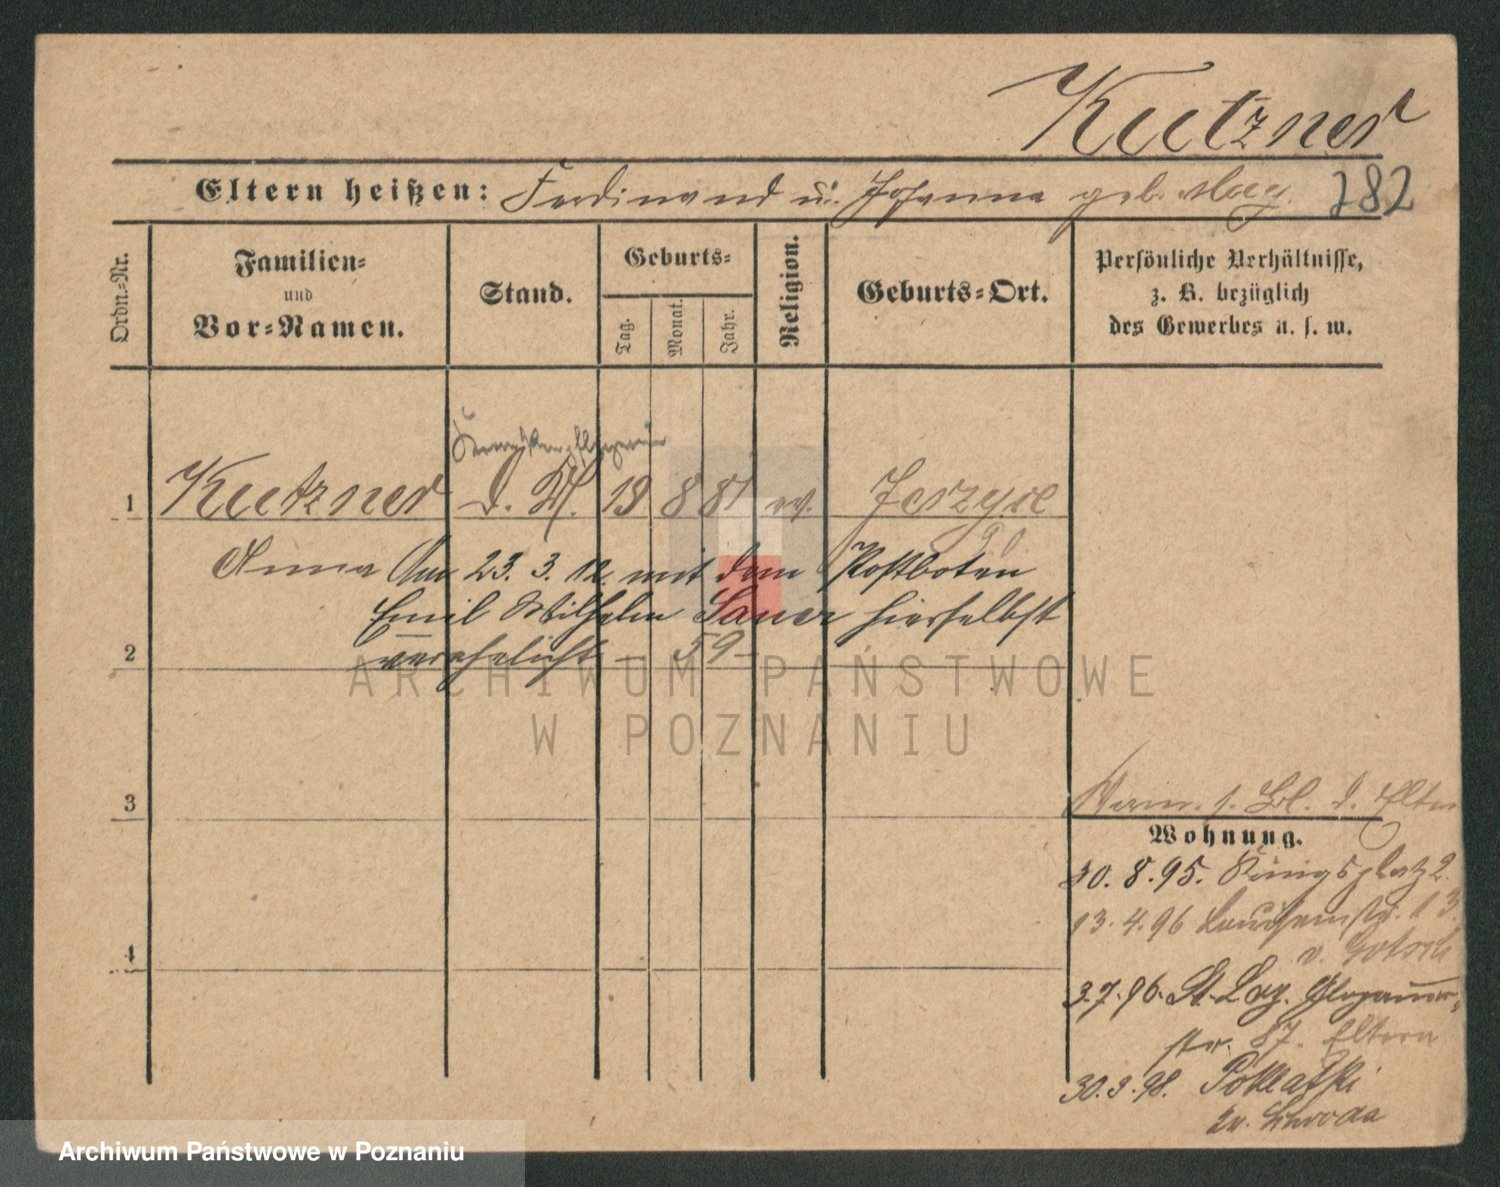 Kutzner
Eltern heißen: Ferdinand u. Johanna geb. May. 282
Ordn.-Nr.
Familien-
und
Vor-Namen.
Stand.
Geburts-
Tag.
Monat.
Jahr.
Religion.
Geburts-Ort.
Persönliche Verhältnisse,
z. B. bezüglich
des Gewerbes u. s. w.
1 Kutzner d. M. 19 8 81 ev. Jerzyce
Anna Am 23. 3. 12. mit dem Postboten
Emil Wilhelm Sauer hierselbst
2 verehelicht - 59 -
ARCHIWUM PAŃSTWOWE
W POZNANIU
3
Verm. s. Bl. d. Eltern
Wohnung.
30. 8. 95. Königsplatz 2.
13. 4. 96 Louisenstr. 13.
v.
4
3.7.96. St. Laz. Glogauer-
str. 87. Eltern
30. 3. 98. Poklatki
Kr. Schroda
Archiwum Państwowe w Poznaniu